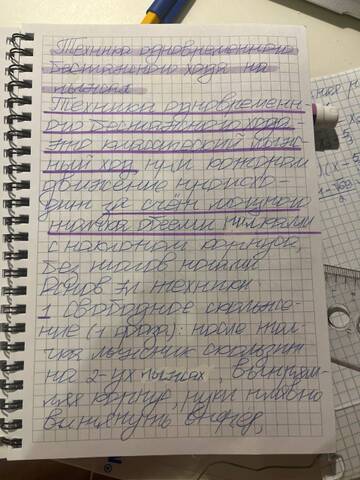 Техника одновременного
бесшажного хода на
лыжах
Техника одновремен-
ого бесшажного хода
это классический лыж-
ный ход при котором
движение происхо
дит за счёт мощного
толчка обеими палками
с наклоном корпуса,
без шагов ногами
Основ эл. техники.
1 Свободное скольже-
ние (1 фаза): после тол-
чка лыжник скользит
на 2-ух лыжах, выпрям-
ляя корпус, руки плавно
вытянуть вперед,